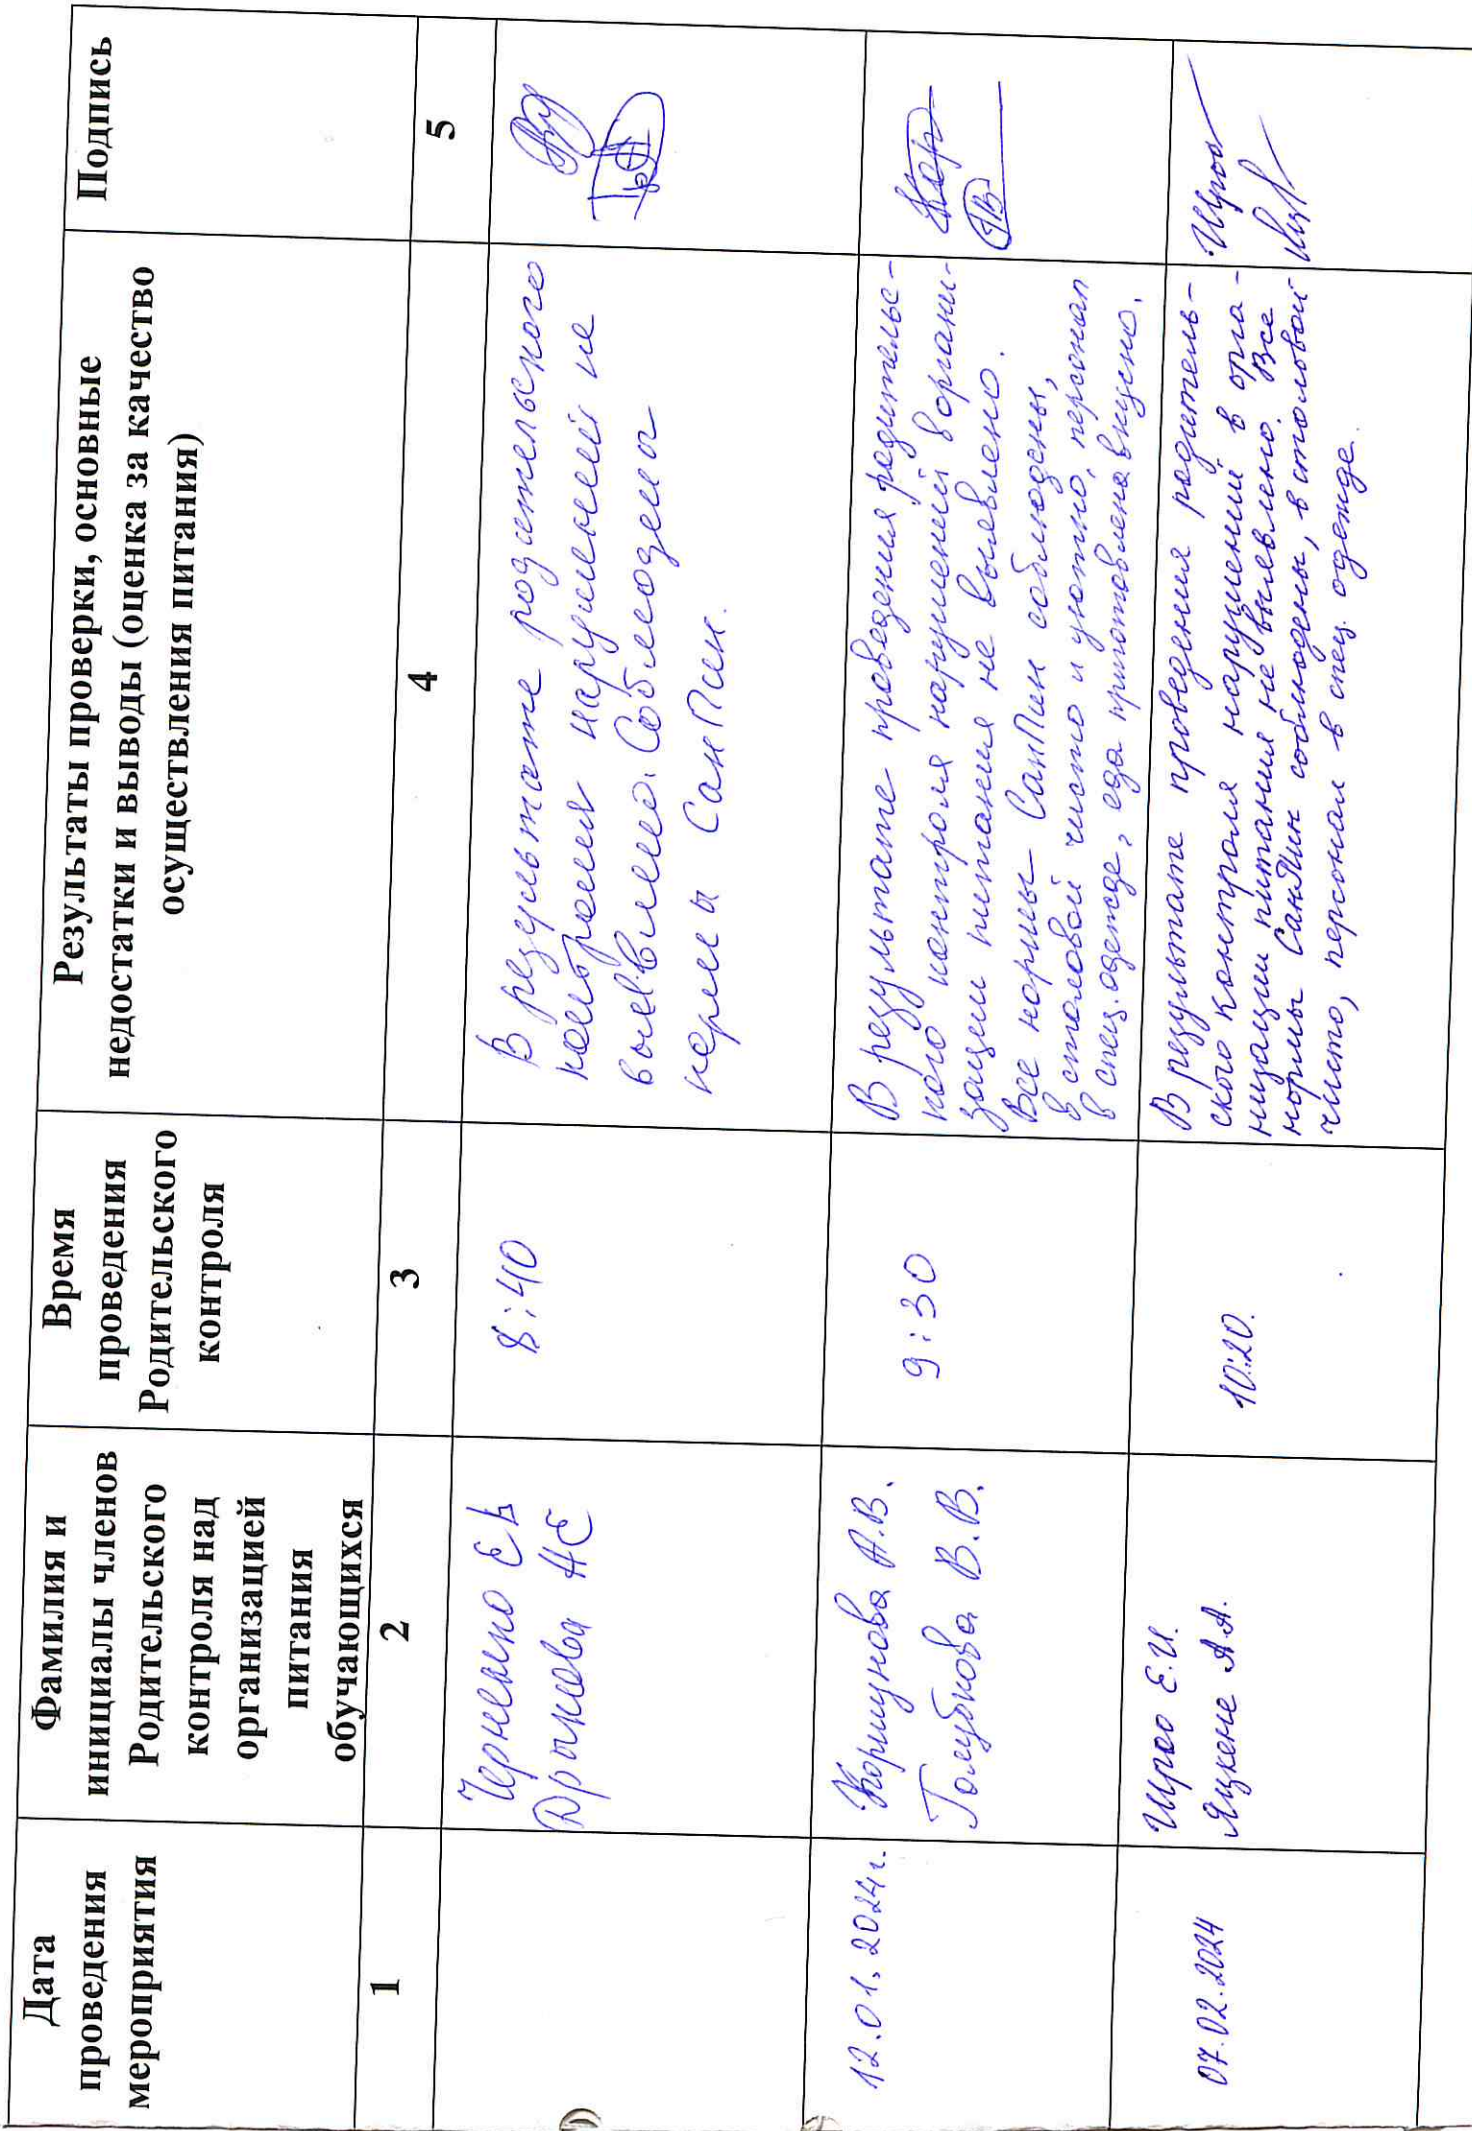 Дата
проведения
мероприятия
Фамилия и
инициалы членов
Родительского
контроля над
организацией
питания
обучающихся
Время
проведения
Родительского
контроля
Результаты проверки, основные
недостатки и выводы (оценка за качество
осуществления питания)
Подпись
1
2
3
4
5
8:40
В результате родительского
нарушений не
выявлено. Соблюдены
нормы СанПин.
12.01.2024г.
Коршунова А.В.
Голубкова В.В.
9:30
В результате проведения родительс-
кого контроля нарушений в органи-
зации питания не выявлено.
Все нормы СанПин соблюдены,
в столовой чисто и уютно, персонал
в спец. одежде, еда приготовлена вкусно.
07.02.2024
Е.И.
Яцкене А.А.
10:20.
В результате проведения родитель-
ского контроля нарушений в орга-
низации питания не выявлено. Все
нормы СанПин соблюдены, в столовой
чисто, персонал в спец. одежде.